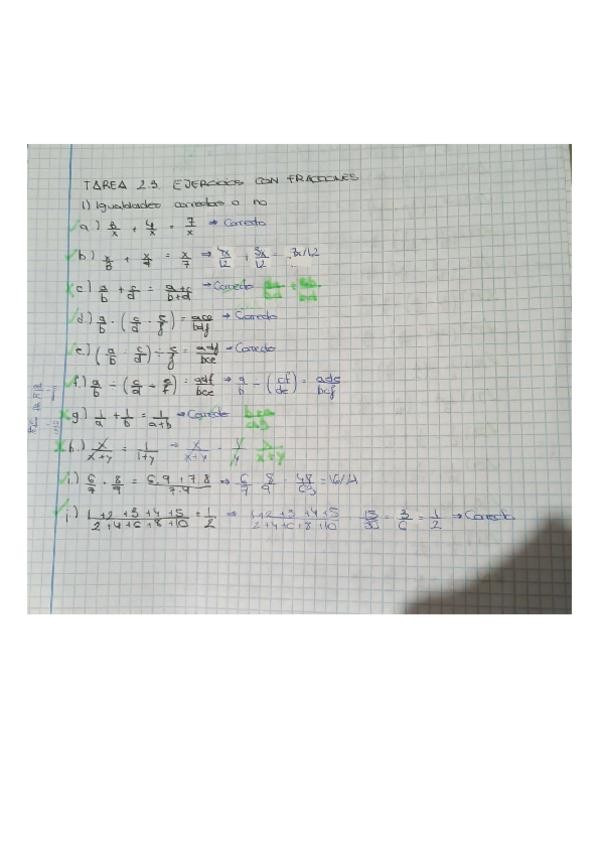 TAREA 2.3 EJERCICIOS CON FRACCIONES
1) Igualdades correctas o no
a) 3/x + 4/x = 7/x → Correcto
b) x/3 + x/4 = x/7 → 4x/12 + 3x/12 = 7x/12
c) a/b + c/d = a+c/b+d → Correcto
d) a/b · (c/d · e/f) = ace/bdf → Correcto
e) (a/b ÷ c/d) ÷ e/f = adf/bce → Correcto
f) a/b ÷ (c/d ÷ e/f) = adf/bce → a/b ÷ (cf/de) = ade/bcf
g) 1/a + 1/b = 1/a+b → Correcto
h) x/x+y = 1/1+y → x/x+y
i) 6/7 · 8/9 = 6.9 + 7.8/7.9 → 6/7 8/9 · 48/63 = 16/21
j) 1+2+3+4+5/2+4+6+8+10 = 1/2 → 1+2+3+4+5/2+4+6+8+10 15/30 = 3/6 = 1/2 → Correcto